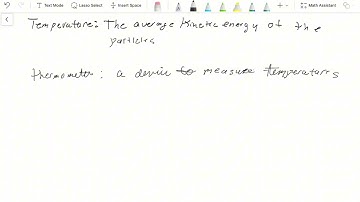 Text Mode Lasso Select Insert Space Math Assistant
Temperature: The average kinetic energy of the
particles
thermometer: a device to measure temperatures